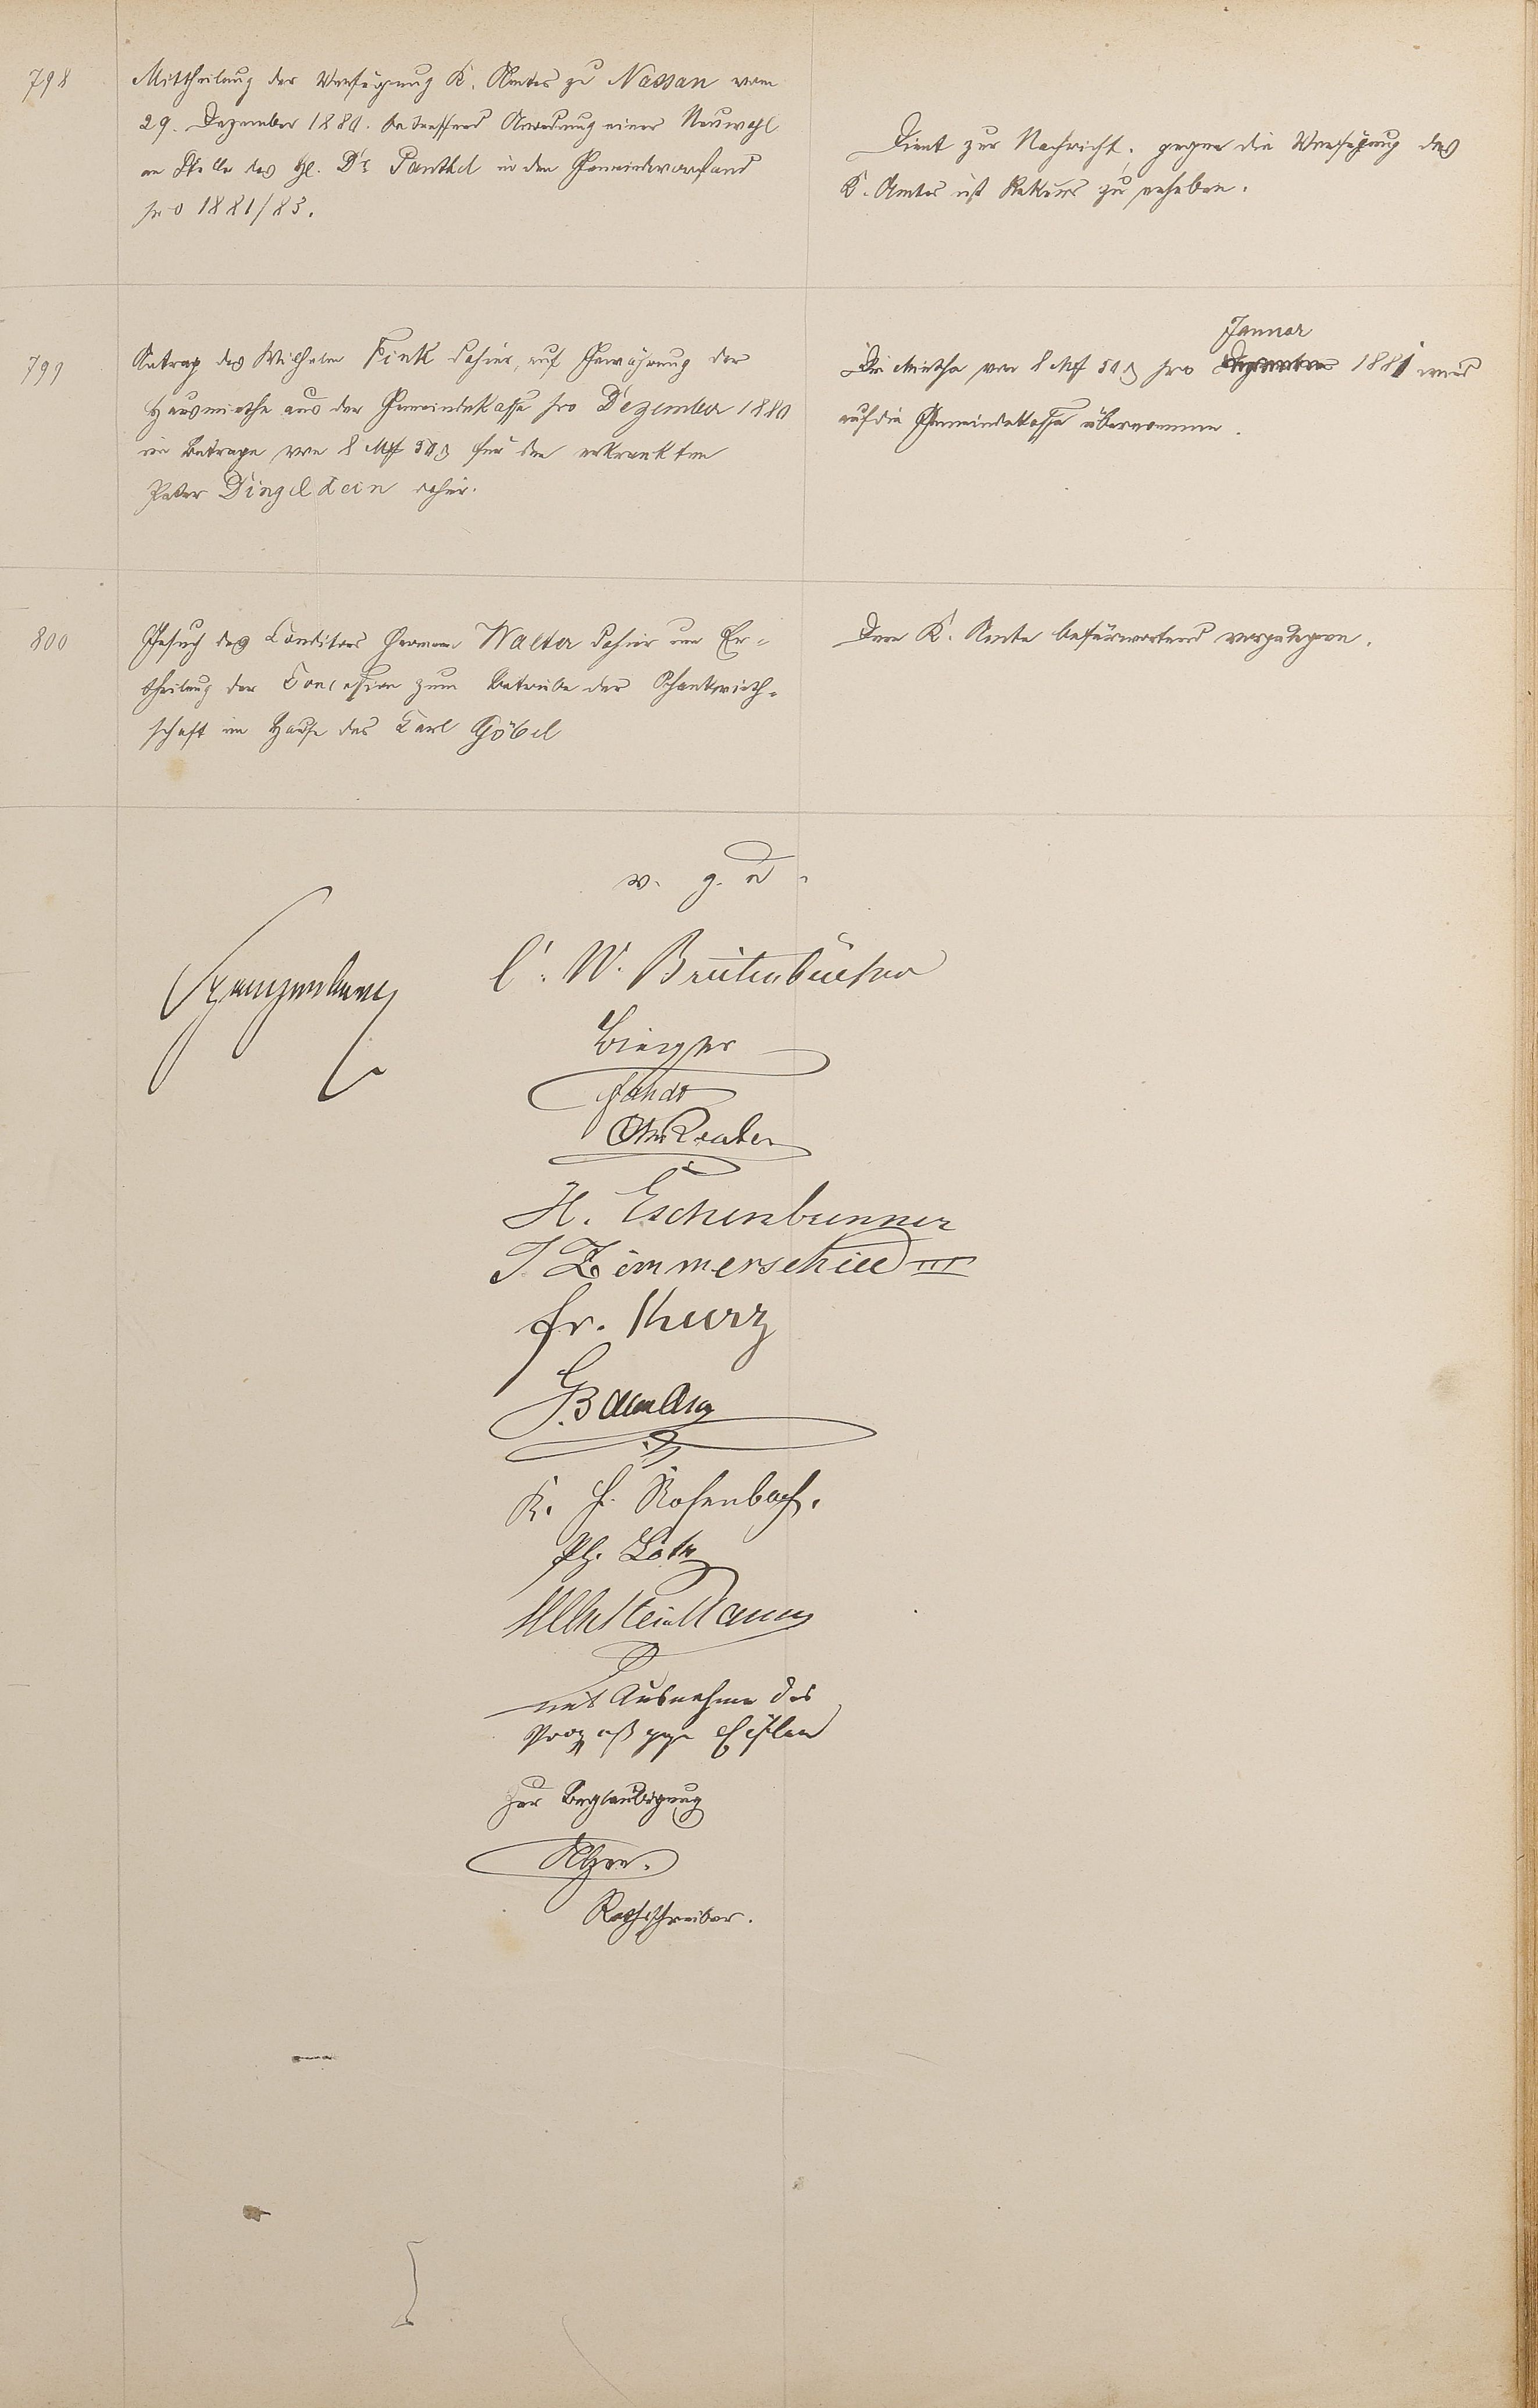 798
Mittheilung der Verfügung K. Amtes zu Nassau vom
29. Dezember 1880. betreffend Anordnung einer Neuwahl
an Stelle des H. Dr. Panthel in den Gemeindevorstand
pro 1881/83.
Dient zur Nachricht, gegen die Verfügung des
K. Amtes ist Rekurs zu erheben.
799
Antrag des Wilhelm Fink dahier, auf Gewährung der
Hausmiethe aus der Gemeindekasse pro Dezember 1880
im Betrage von 8 Mk 50 ₰ für den erkrankten
Peter Dingelstein dahier.
Januar
Die Miethe von 8 Mk 50 ₰ pro Dezember 1881 wird
auf die Gemeindekasse übernommen.
800
Gesuch des Conditors Hermann Walter dahier um Er-
theilung der Concession zum Betriebe der Schankwirth-
schaft im Hause des Carl Göbel
Dem K. Amte befürwortend vorzulegen.
v. g. u.
Spangenberg
C. W. Breitenbücher
H. Eschenbrenner
J Zimmerschied III
Fr. Kurz
K. H. Rosenbach.
Ph. Lotz
mit Ausnahme des
Prozeß gegen
Zur Beglaubigung
Rathschreiber.